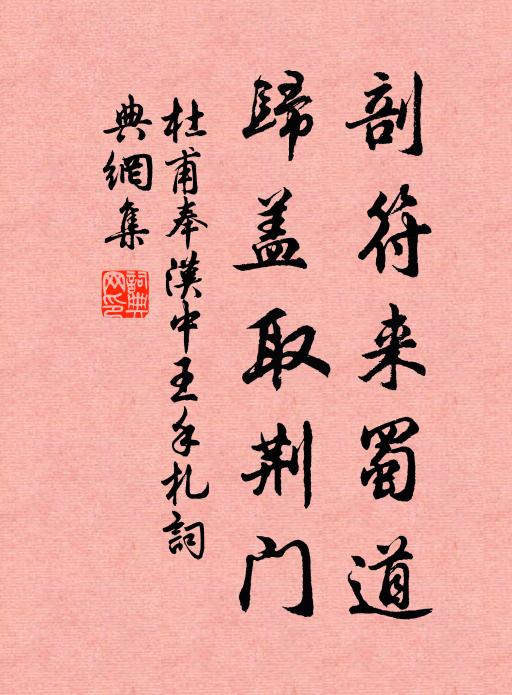 剖符来蜀道
歸盖取荆门
杜甫奉漢中王手札詞
典網集
詞典网印